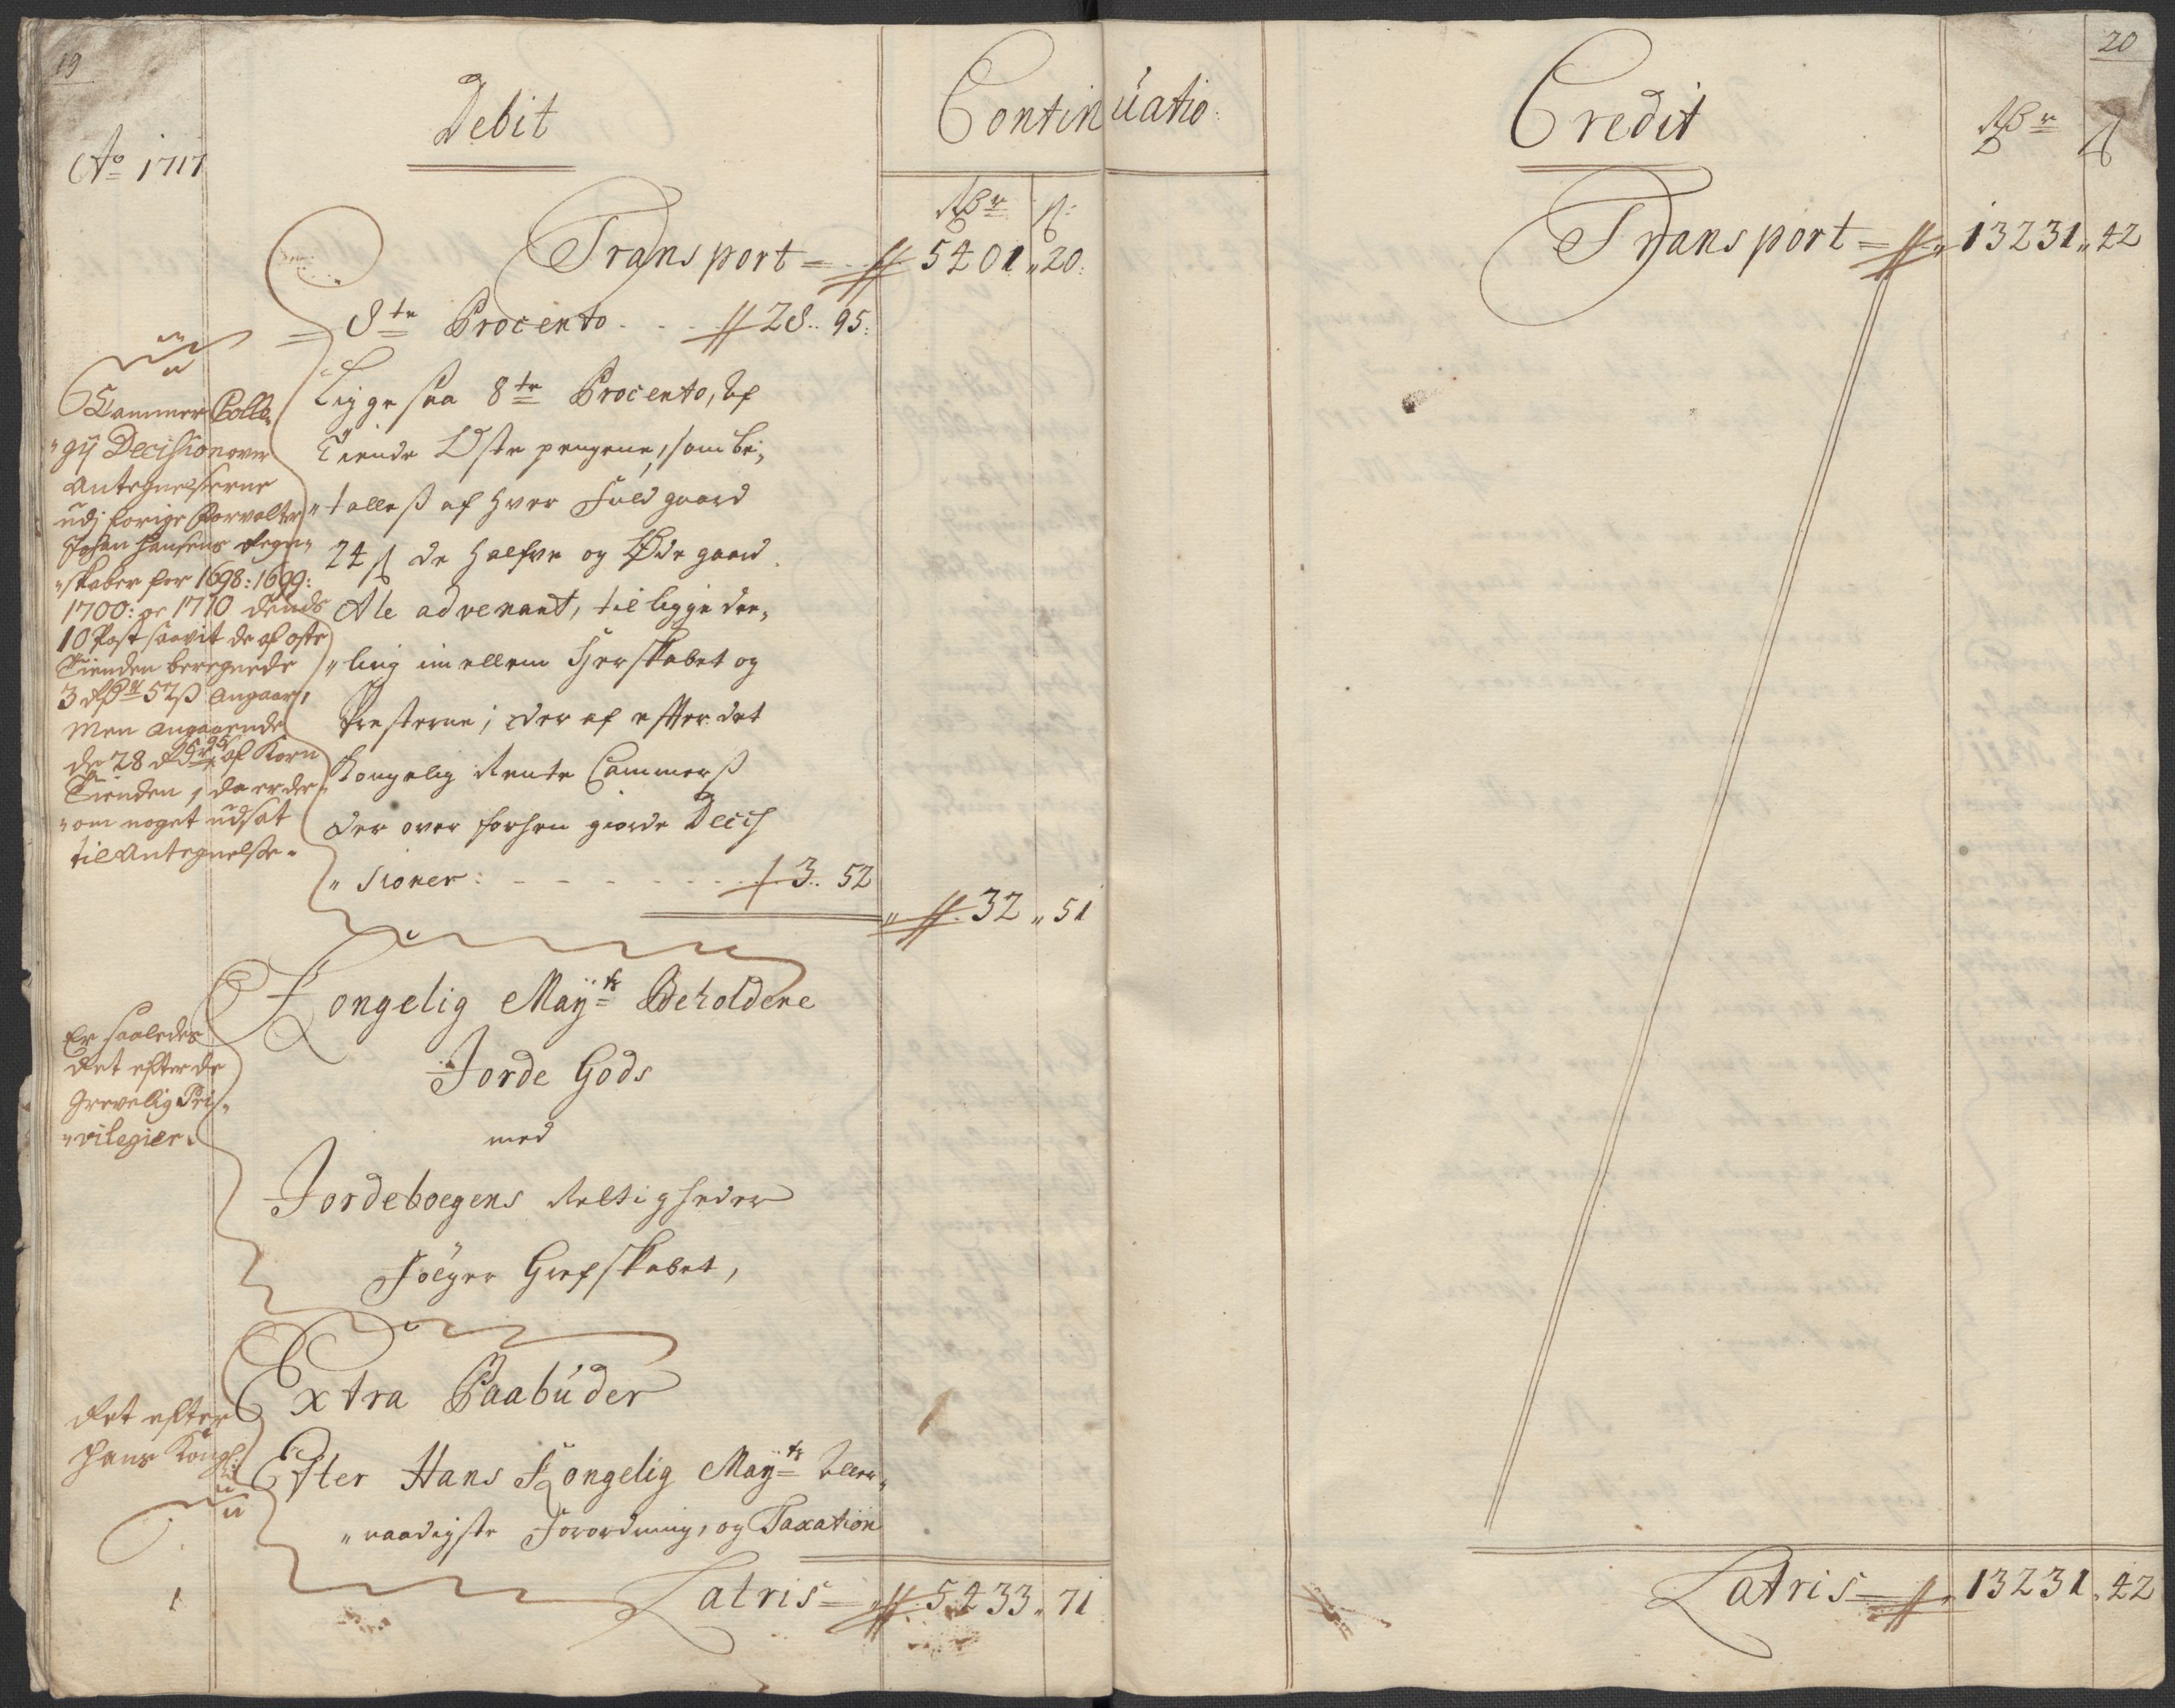 19
Debit
Continuatio
Ao 1717
Rdr ß
Transport = 5401 " 20:
8te Procento . . . 28 .. 95:
Ligesaa 8te Procento, af
Tiende Oste pengene, som be,
"talles af hver Fuld gaard
24 ß de Halfve og Øde gaard
Ale advenant, til ligge dee,
"ling imellem Herskabet og
Presterne; der af efter det
Kongelig Rente Cammerß
der over forhen giorde Decis
"sioner: - - - - - - 3 .. 52
" 32 " 51
Cammer Colle,
"gij Decision over
Antegnelserne
udj forige Forvalter
Johan Hansens Regen
"skaber for 1698: 1699:
1700: og 1710 dends
10 Post saavit de af oste
Tienden beregnede
3 Rdr 52 ß angaar,
Men angaaende
de 28 Rdr 95 ß af Korn
Tienden, da er der
"om noget udsat
til Antegnelse.
Kongelig Mayts Beholdene
Jorde Gods
med
Jordebogens Rettigheder
Følger Grefskabet,
Er saaledes
Ret efter de
Grevelig Pri,
"vilegier.
Extra Paabuder
Efter Hans Kongelig Mayts Aller,
"naadigste Forordning, og Taxation
Ret efter
Hans Kongl:
Latris = 5433 " 71
20
Credit
Rdr ß
Transport = " 13231 " 42
Latris = " 13231 " 42